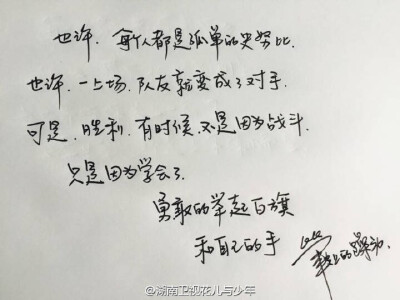 也许，每个人都是孤单的史努比.
也许，一上场，队友就变成了对手.
可是，胜利，有时候，不是因为战斗.
只是因为学会了.
勇敢的举起白旗
和自己的手
掌上的躁动.
@湖南卫视花儿与少年